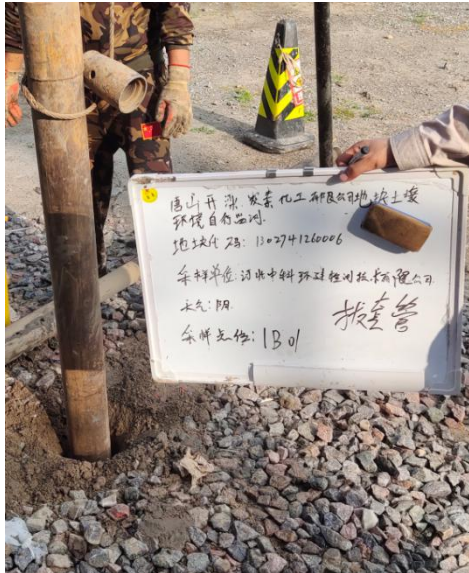 唐山开滦炭素化工有限公司地块土壤
环境自行监测
地块代码: 1302741260006
采样单位: 河北中科环建检测技术有限公司
天气: 阴
采样点位: 1B01
拔套管